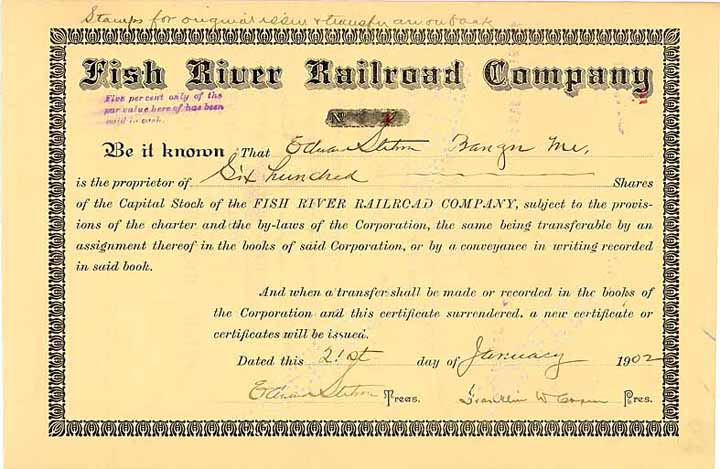 Stamps for original issue & transfer are on back
Fish River Railroad Company
Five per cent only of the
par value hereof has been
paid in cash.
No
Be it known That Edward Stetson Bangor Me.
is the proprietor of Six hundred Shares
of the Capital Stock of the FISH RIVER RAILROAD COMPANY, subject to the provis-
ions of the charter and the by-laws of the Corporation, the same being transferable by an
assignment thereof in the books of said Corporation, or by a conveyance in writing recorded
in said book.
And when a transfer shall be made or recorded in the books of
the Corporation and this certificate surrendered, a new certificate or
certificates will be issued.
Dated this 21st day of January 1902
Edward Stetson Treas. Franklin W Pres.